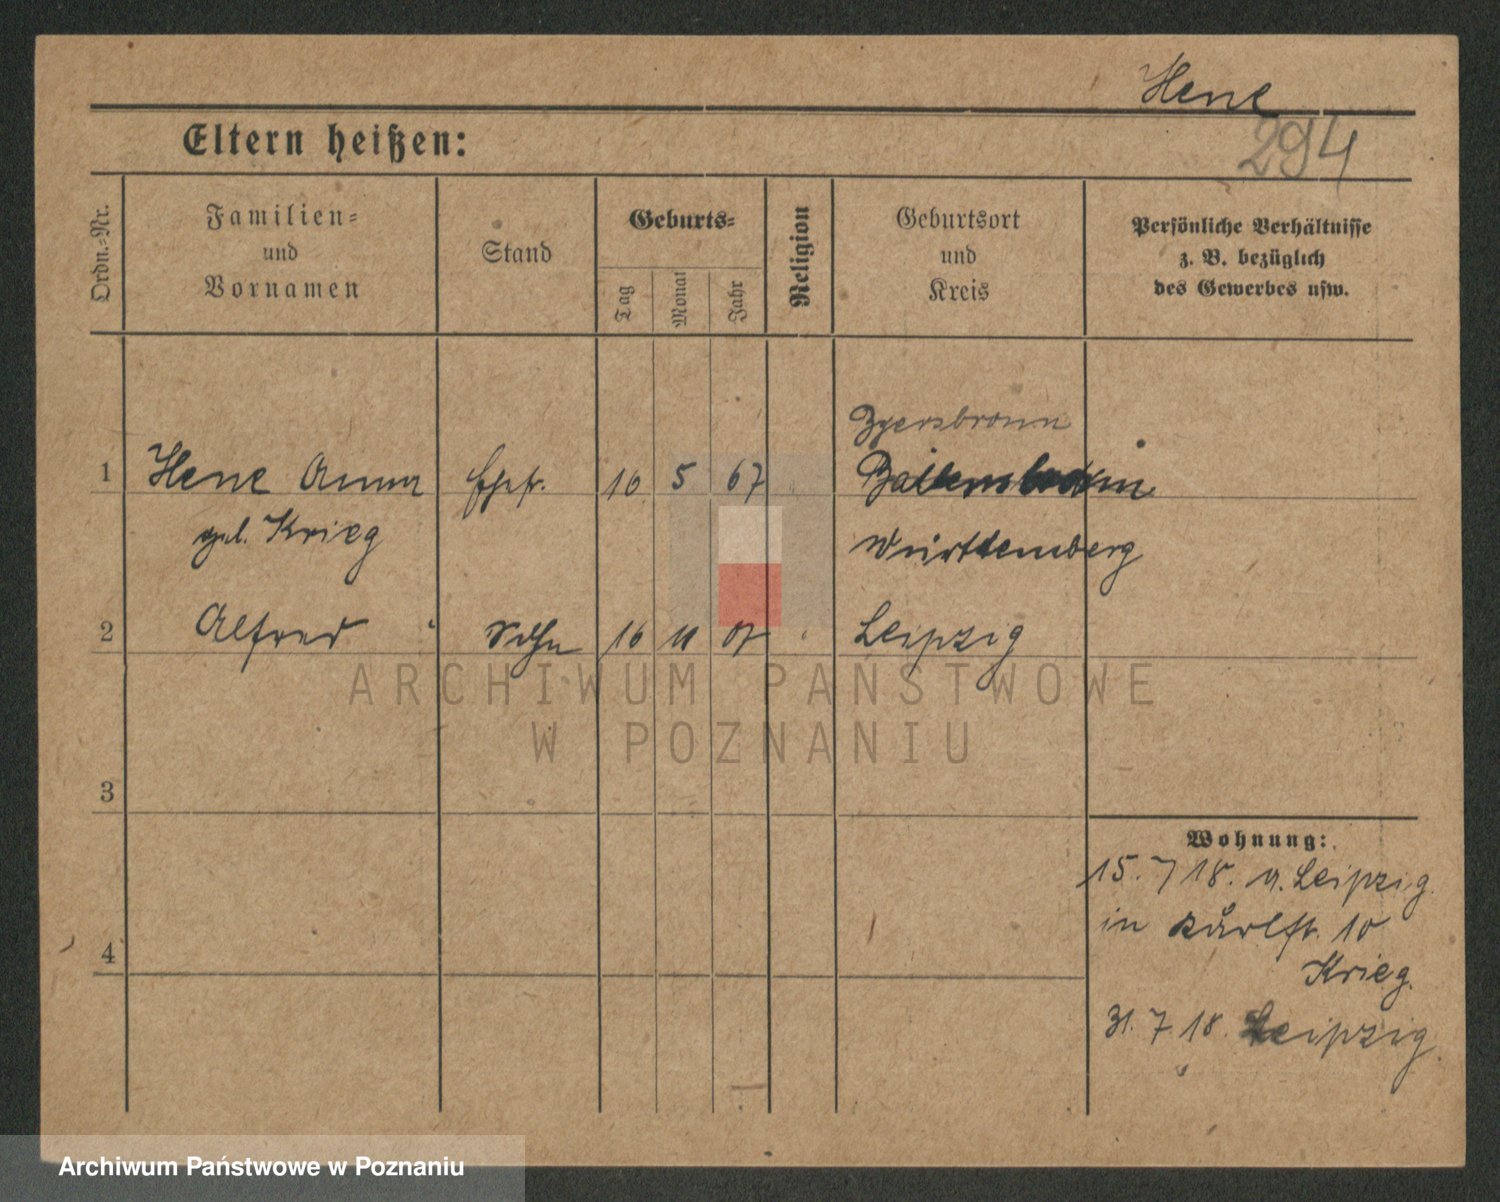 Hene
294
Eltern heißen:
Ordn.-Nr.
Familien-
und
Vornamen
Stand
Geburts-
Tag
Monat
Jahr
Religion
Geburtsort
und
Kreis
Persönliche Verhältnisse
z. B. bezüglich
des Gewerbes usw.
1
Hene Anna
geb. Krieg
Ehefr.
16
5
67
Württemberg
2
Alfred "
Sohn
16
11
07
Leipzig
3
4
Wohnung:
15. 7 18. v. Leipzig.
in Karlst. 10
Krieg.
31. 7. 18. Leipzig.
ARCHIWUM PAŃSTWOWE
W POZNANIU
Archiwum Państwowe w Poznaniu